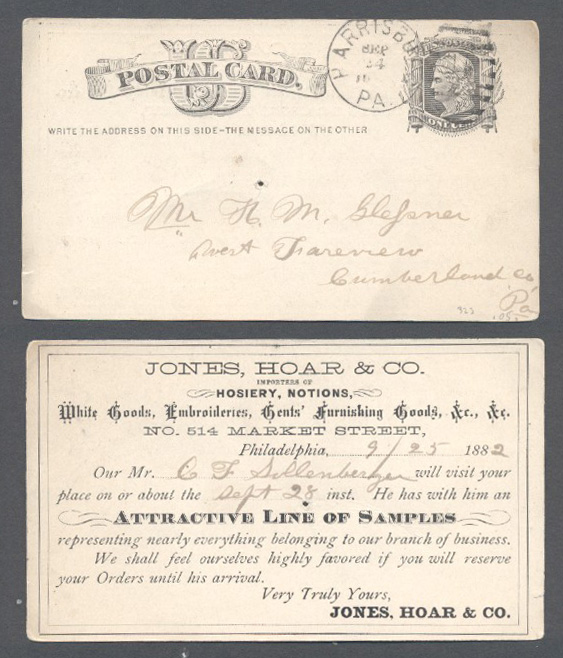 US
POSTAL CARD.
WRITE THE ADDRESS ON THIS SIDE–THE MESSAGE ON THE OTHER
HARRISBURG
SEP
24
PA.
ONE CENT
Mr H. M. Glessner
West Fareview
Cumberland co
Pa
JONES, HOAR & CO.
IMPORTERS OF
HOSIERY, NOTIONS,
White Goods, Embroideries, Gents' Furnishing Goods, &c., &c.
NO. 514 MARKET STREET,
Philadelphia, 9/25 1882
Our Mr. C F Sollenberger will visit your
place on or about the Sept 28 inst. He has with him an
ATTRACTIVE LINE OF SAMPLES
representing nearly everything belonging to our branch of business.
We shall feel ourselves highly favored if you will reserve
your Orders until his arrival.
Very Truly Yours,
JONES, HOAR & CO.